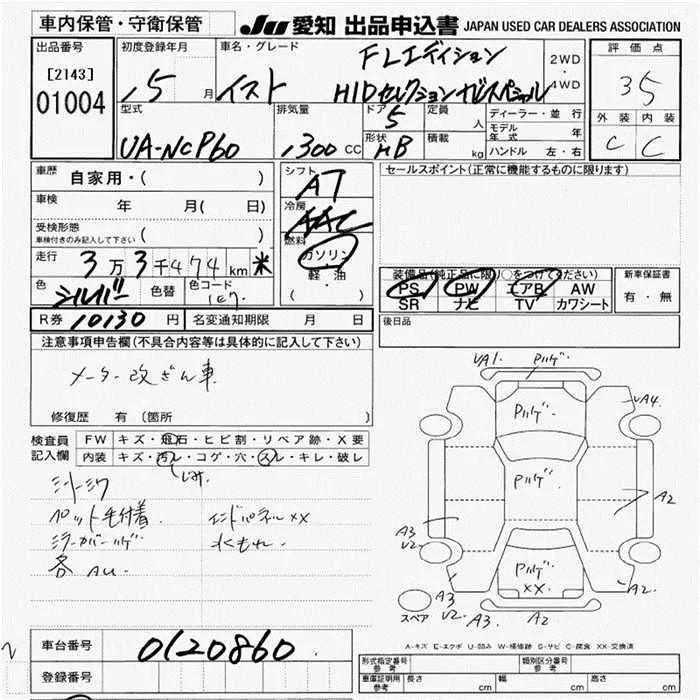 車内保管・守衛保管 JU 愛知 出品申込書 JAPAN USED CAR DEALERS ASSOCIATION
出品番号 初度登録年月 車名・グレード FLエディション 2WD・4WD 評価点
[2143] 01004 15 月 イスト HIDセレクション ナビスペシャル 35
型式 排気量 ドア 5 定員 人 ディーラー・並行 外装 内装
モデル年式 年
UA-NCP60 1300 CC 形状 HB 積載 kg ハンドル 左・右 C C
車歴 自家用・( ) シフト AT セールスポイント(正常に機能するものに限ります)
車検 年 月( 日) 冷房 AAC
受検形態 車検付きのみ記入して下さい ( ) 燃料
ガソリン・軽油
走行 3万3千474km
( ・ )
装備品(純正品に限り○をつけてください) 新車保証書
色 シルバー 色替 色コード 1E7 PS PW エアB AW 有・無
SR ナビ TV カワシート
R券 10130 円 名変通知期限 月 日 後日品
注意事項申告欄(不具合内容等は具体的に記入して下さい)
メーター改ざん車
修復歴 有 〔箇所 〕
検査員記入欄 FW キズ・飛石・ヒビ割・リペア跡・X要
内装 キズ・汚れ・コゲ・穴・スレ・キレ・破レ
シミ
ペット毛付着 インドパネルXX
ミラーカバーハゲ 水もれ
各AU
UA1 Pハゲ
Pハゲ UA4
Pハゲ
A2
A3
U2
Pハゲ
XX
A2
A3
U2 A3 A2
スペア
A-キズ E-エクボ U-凹み W-補修跡 S-サビ C-腐食 XX-交換済
車台番号 0120860 形式指定番号 参考 類別区分番号 参考
登録番号 車庫証明用 参考 長さ cm 幅 cm 高さ cm